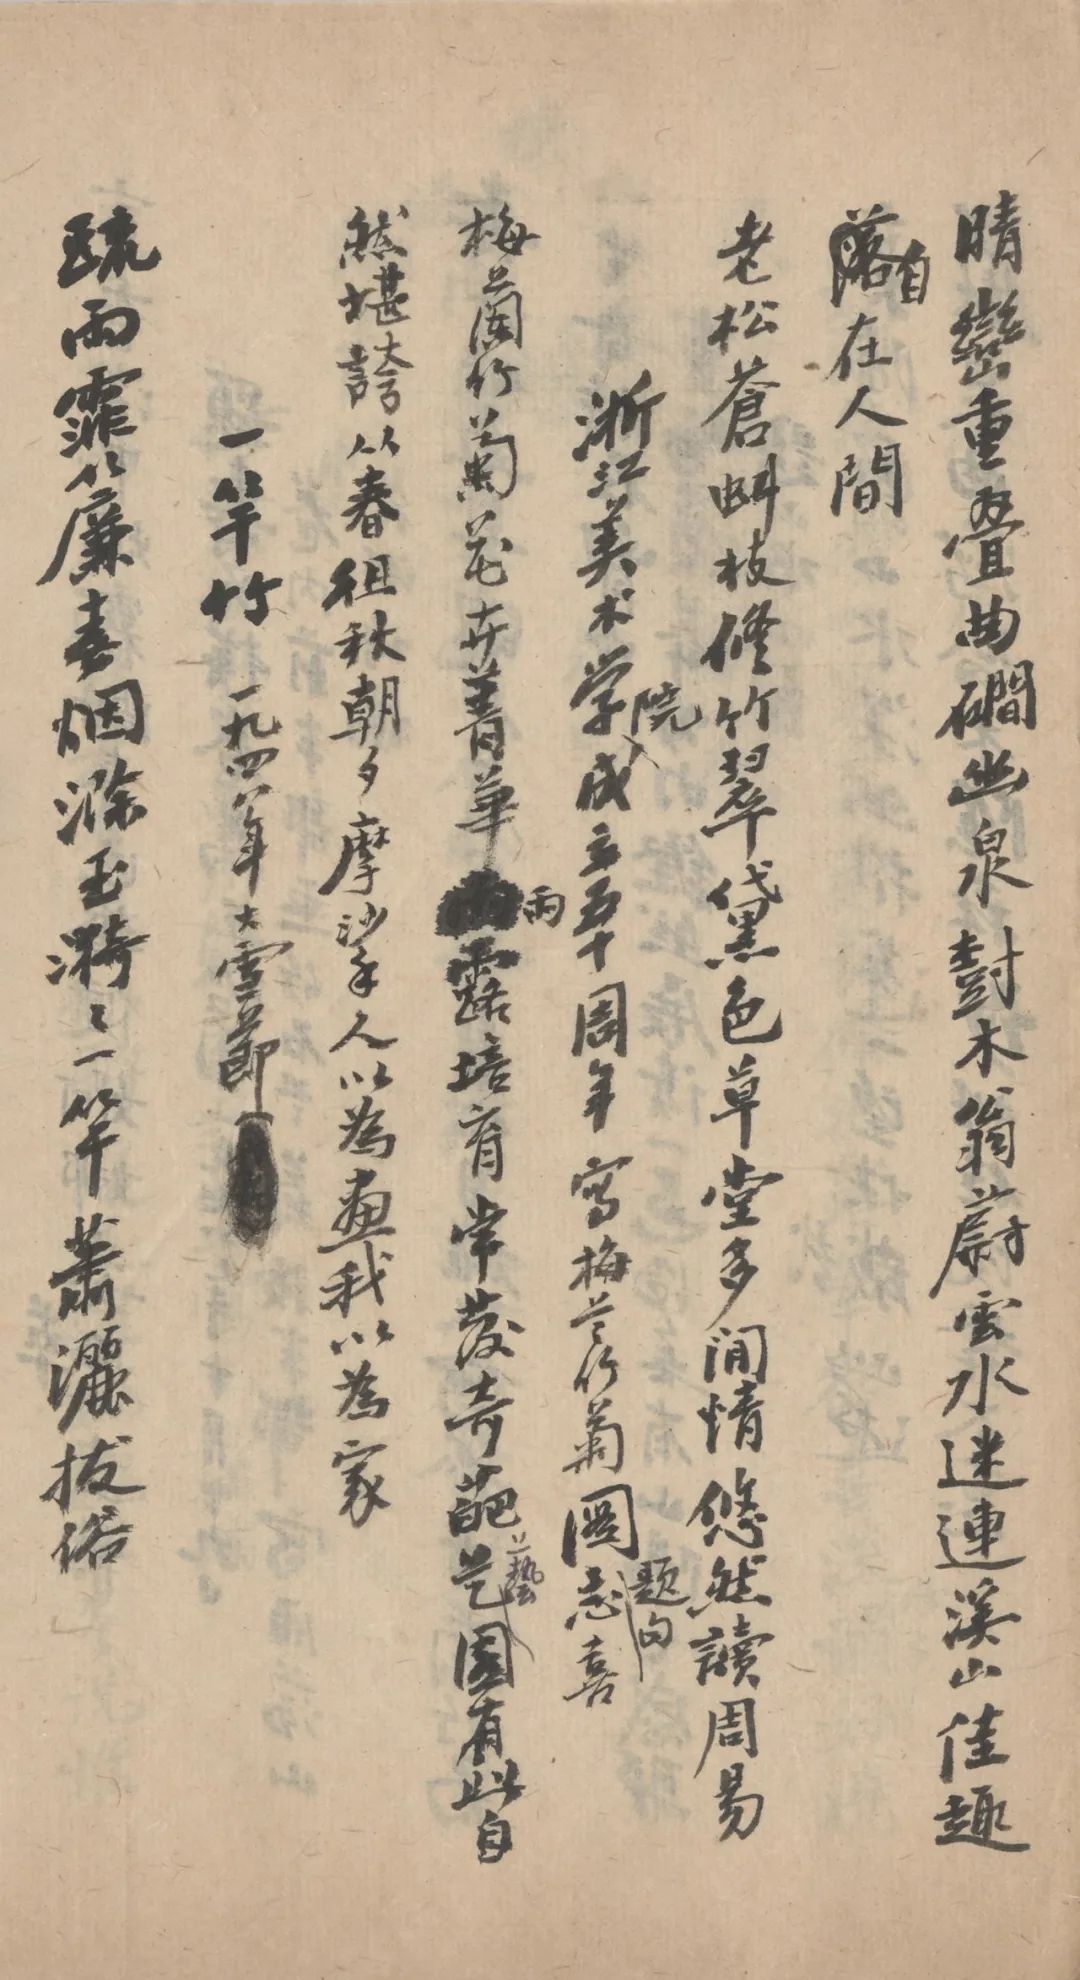 晴巒重叠曲磵幽泉封木翁蔚雲水迷連溪山佳趣
落自在人間
老松蒼虯枝修竹翠黛色草堂多閒情悠然讀周易
浙江美术学院成立五十周年寫梅兰竹菊圖題句志喜
梅蘭竹菊花卉菁華雨露培育常發奇葩艺藝園有此自
然堪誇以春徂秋朝夕摩挲人以為畫我以為家
一竿竹 一九四八年大雪節
疏雨霏竹簾春烟滌玉漪〻一竿蕭灑拔俗